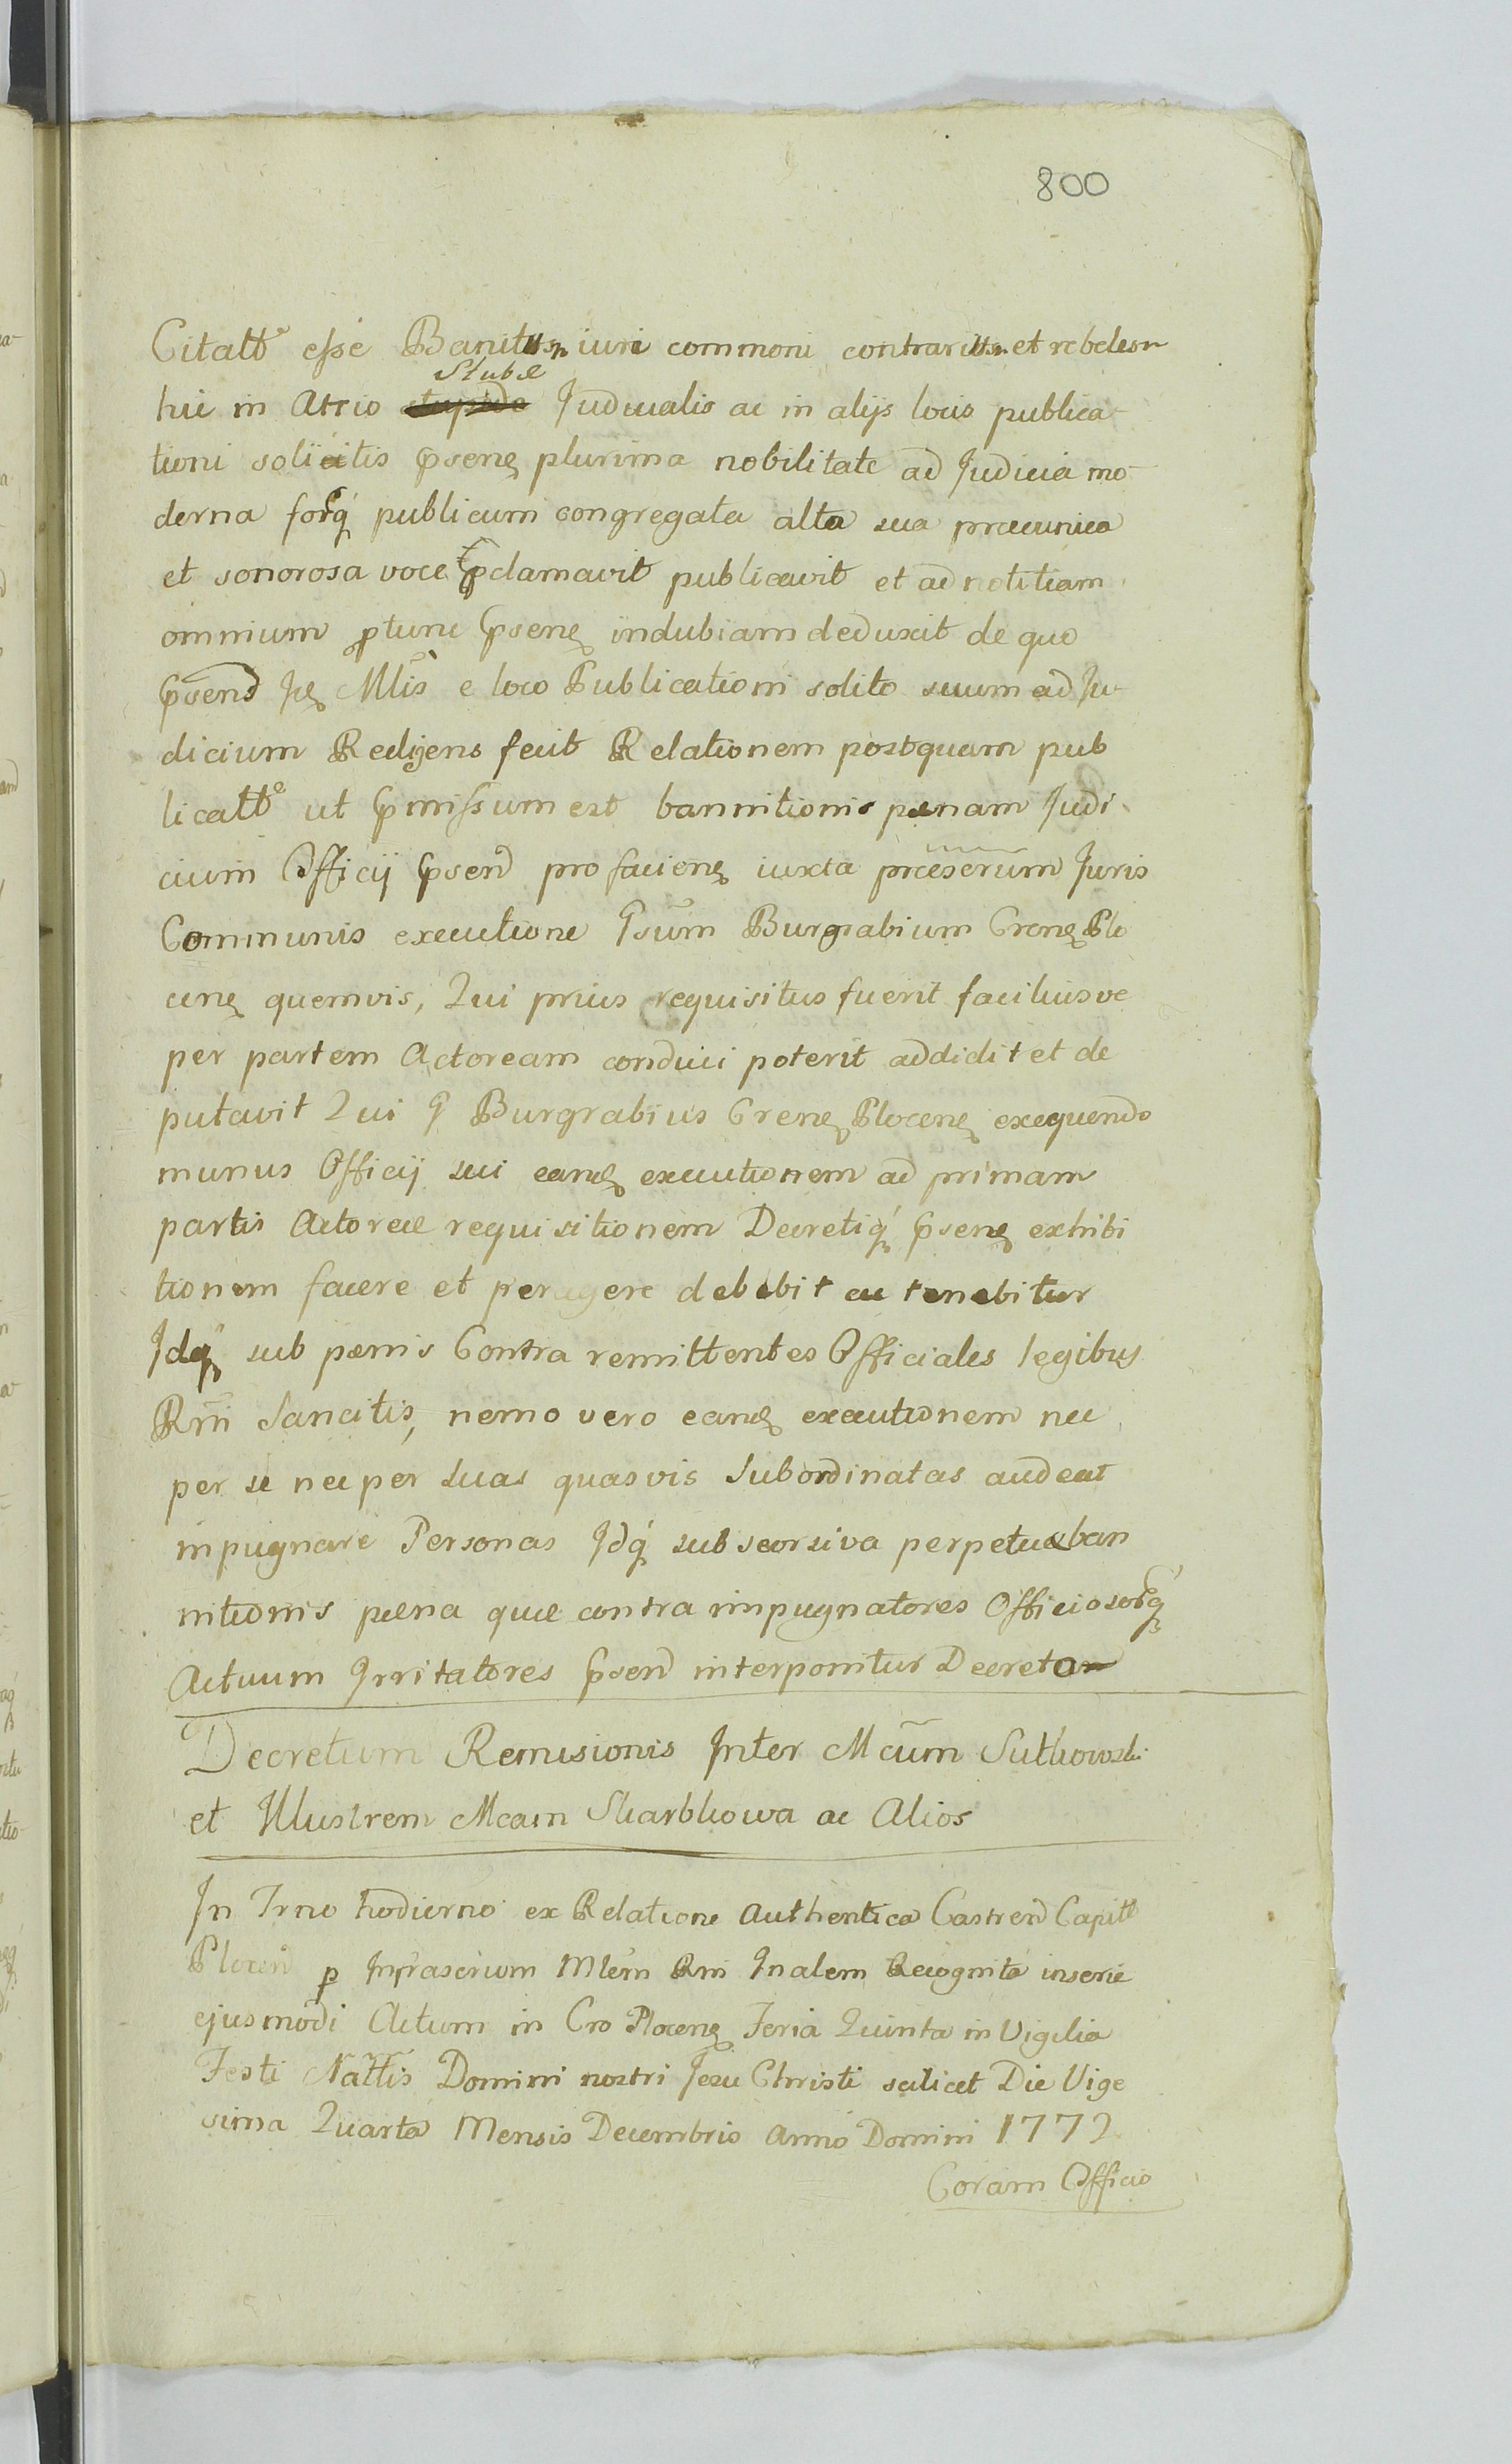 800
Citatt͠ esse Banitum iuri commoni contrarium et rebelem
hic in Atrio Stubæ Judicialis ac in alijs locis publica-
tioni solicitis Psene plurima nobilitate ad Judicia mo-
derna forq́ publicum congregata alta sua præconica
et sonorosa voce Pclamavit publicavit et ad notitiam
omnium ptunc Psene indubiam deduxit de quo
Psend Jg Mlis e loco Publicationi solito suum ad Ju-
dicium Redijens fecit Relationem postquam pub
licatt͠ ut Pmissum est bannitionis pænam Judi-
cium Officij Psend pro faciene iuxta præscrum Juris
Communis executione Gsum Burgrabium Crene Plo
cene quemvis, Qui prius requisitus fuerit faciliusve
per partem Actoream conduci poterit addidit et de
putavit Qui G Burgrabius Crene Plocene exequendo
munus Officij sui eand executionem ad primam
partis Actoreæ requisitionem Decretiq́ Psene exhibi
tionem facere et peragere debebit ac tenebitur
Jdq́ sub pænis Contra remittentes Officiales legibus
Rni Sancitis, nemo vero eand executionem nec
per se nec per suas quasvis Subordinatas audeat
inpugnare Personas Jdq́ sub seorsiva perpetuæ ban
nitionis pæna quæ contra impugnatores Officiosorq́
Actuum Irritatores Psend interponitur Decreto
Decretum Remisionis Inter Mcum Sutkowski
et Illustrem Mcam Skarbkowa ac Alios
In Trno hodierno ex Relatione Authentica Castrend Capitt
Plocen p Infrascrium Mlem Rni Gnalem Recognita inserie
ejusmodi Actum in Cro Plocene Feria Quinta in Vigilia
Festi Nattis Domini nostri Jesu Christi scilicet Die Vige
sima Quarta Mensis Decembris Anno Domini 1772
Coram Officio